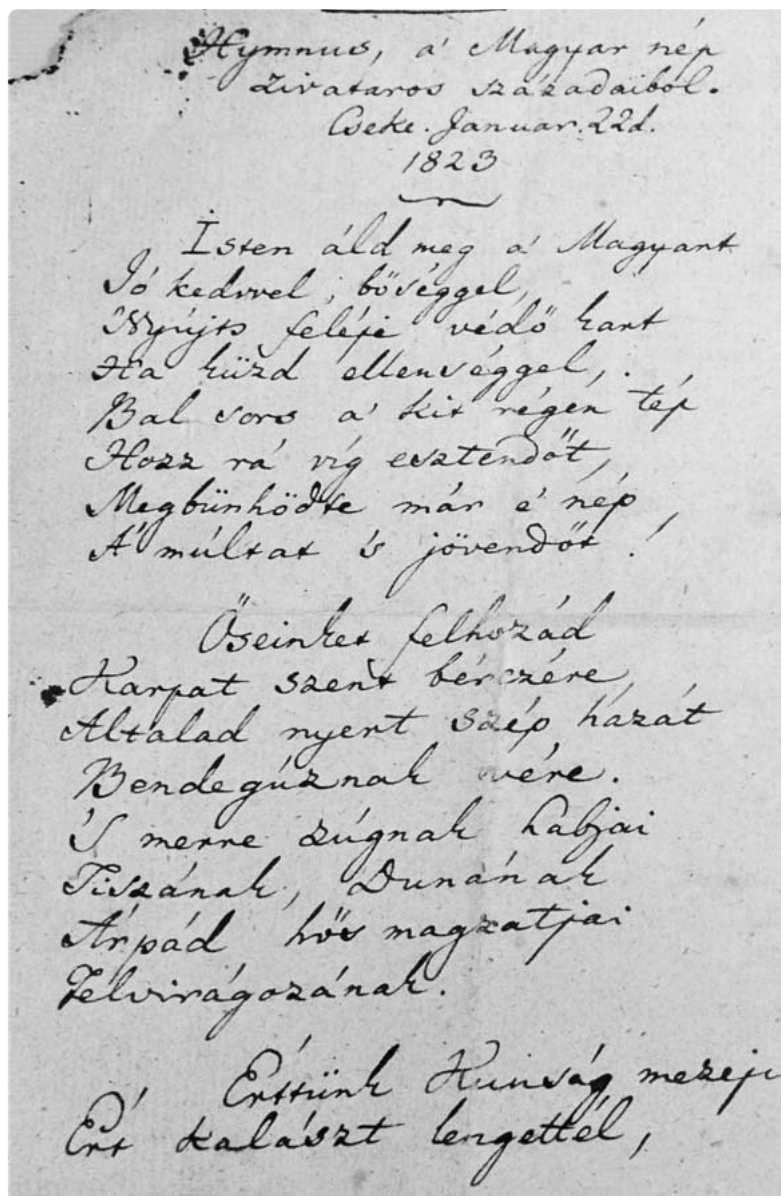 Hymnus, a' Magyar nép
zivataros századaiból.
Cseke. Januar. 22d.
1823
Isten áld meg a' Magyart
Jó kedvvel, bőséggel,
Nyújts feléje védő kart
Ha küzd ellenséggel,
Bal sors a' kit régen tép
Hozz rá víg esztendőt,
Megbűnhödte már e' nép
A' múltat 's jövendőt!
Őseinket felhozád
Kárpát szent bérczére
Általad nyert szép hazát
Bendegúznak vére.
'S merre zúgnak habjai
Tiszának, Dunának
Árpád hős magzatjai
Felvirágozának.
Érttünk Kunság mezeje
Ért kalászt lengettél,